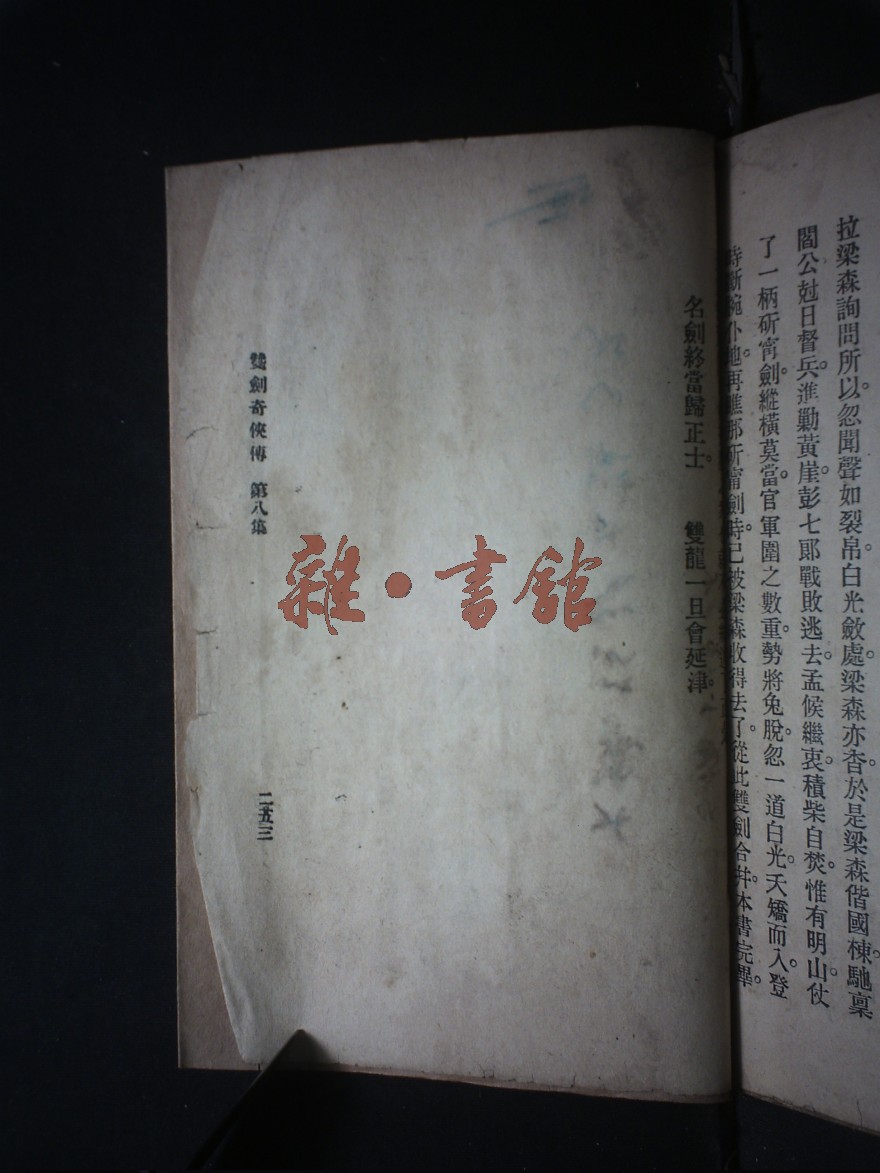 拉梁森詢問所以。忽聞聲如裂帛。白光斂處。梁森亦杳。於是梁森偕國棟馳稟
閻公尅日督兵。進勦黃崖。彭七郎戰敗逃去。孟候繼衷。積柴自焚。惟有明山仗
了一柄斫甯劍。縱橫莫當。官軍圍之數重。勢將兔脫。忽一道白光。夭矯而入。登
時斷腕仆地。再瞧那斫甯劍時。已被梁森收得去了。從此雙劍合并。本書完畢。
名劍終當歸正士。 雙龍一旦會延津。
雙劍奇俠傳 第八集
二五三
雜·書館